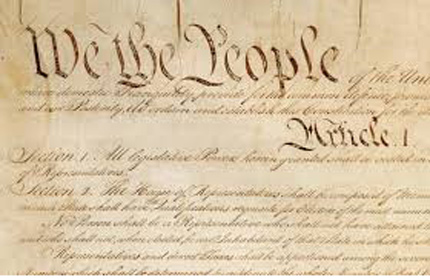 We the People of the Uni
insure domestic Tranquility, provide for the common defence, promo
and our Posterity, do ordain and establish this Constitution for the
Article. I.
Section. 1. All legislative Powers herein granted shall be vested in
of Representatives.
Section. 2. The House of Representatives shall be composed of Mem
in each State shall have the Qualifications requisite for Electors of the most numero
No Person shall be a Representative who shall not have attained t
and who shall not, when elected, be an Inhabitant of that State in which he
Representatives and direct Taxes shall be apportioned among the several